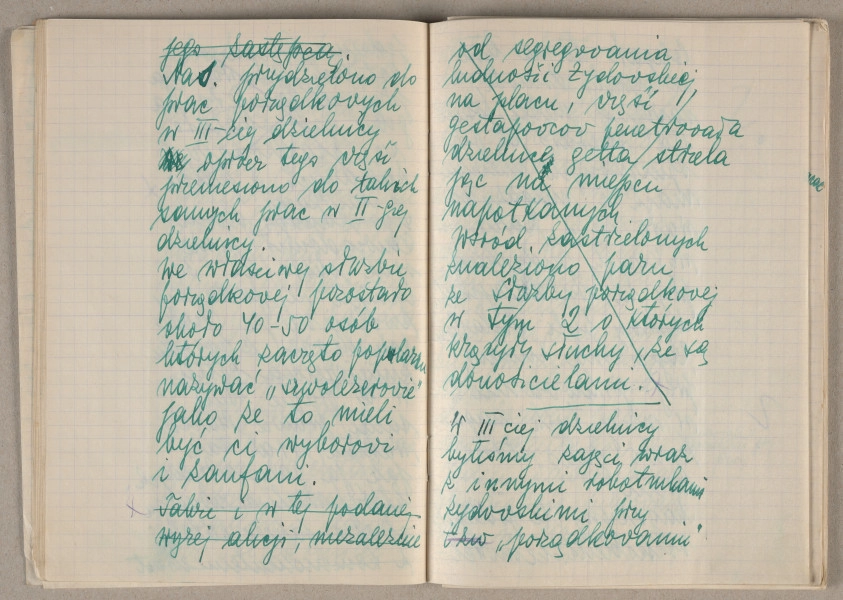 jego zastępca.
Nas przydzielono do
prac porządkowych
w III-ciej dzielnicy
oprócz tego część
przeniesiono do takich
samych prac w II-giej
dzielnicy.
We właściwej służbie
porządkowej pozostało
około 40-50 osób
których zaczęto popularnie
nazywać „
jako że to mieli
być ci wyborowi
i zaufani.
Także i w tej podanej
wyżej akcji, niezależnie
od segregowania
ludności żydowskiej
na placu, część
gestapowców penetrowała
dzielnicę getta strzela
jąc na miejscu
napotkanych
Wśród zastrzelonych
znaleziono paru
ze służby porządkowej
w tym 2 o których
krążyły słuchy, że są
donosicielami.
W III ciej dzielnicy
byliśmy zajęci wraz
z innymi robotnikami
żydowskimi przy
tzw „porządkowaniu"